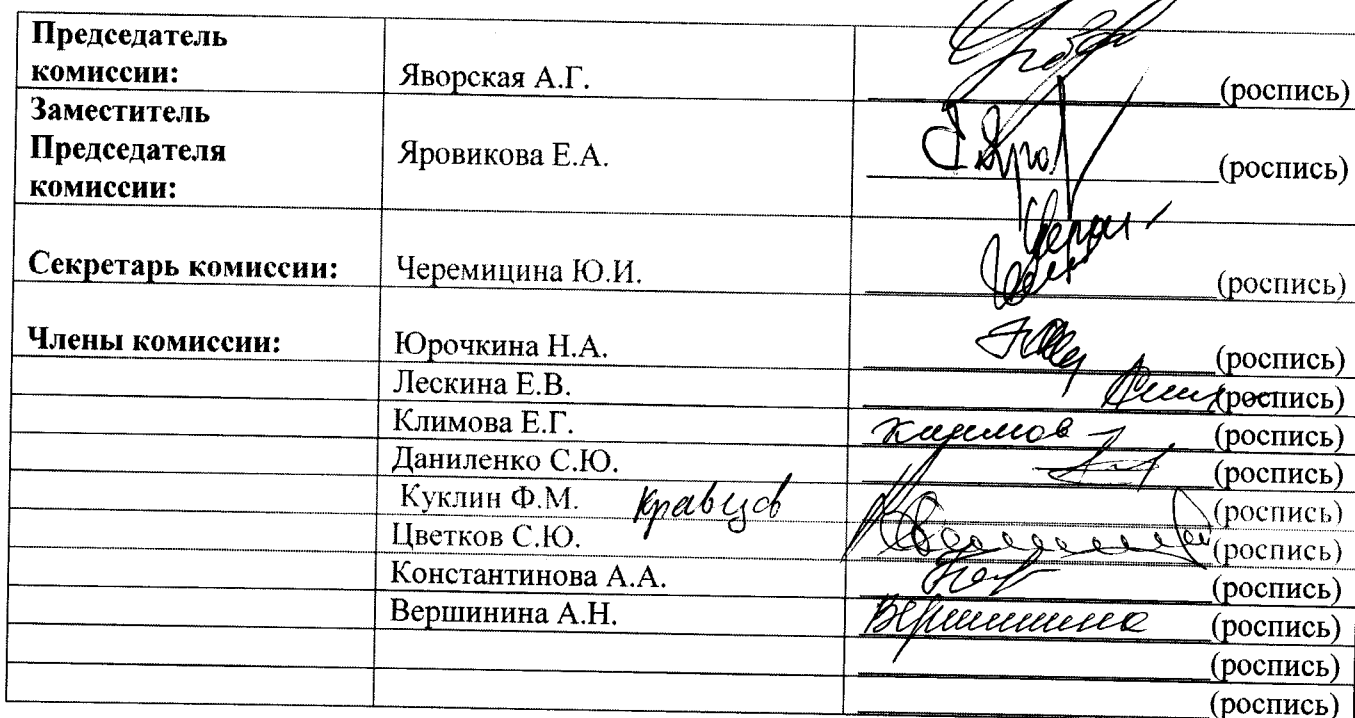 Председатель
комиссии: Яворская А.Г. (роспись)
Заместитель
Председателя Яровикова Е.А. (роспись)
комиссии:
Секретарь комиссии: Черемицина Ю.И. (роспись)
Члены комиссии: Юрочкина Н.А. (роспись)
Лескина Е.В. (роспись)
Климова Е.Г. Климов (роспись)
Даниленко С.Ю. (роспись)
Куклин Ф.М. Кравцов (роспись)
Цветков С.Ю. (роспись)
Константинова А.А. (роспись)
Вершинина А.Н. Вершинина (роспись)
(роспись)
(роспись)